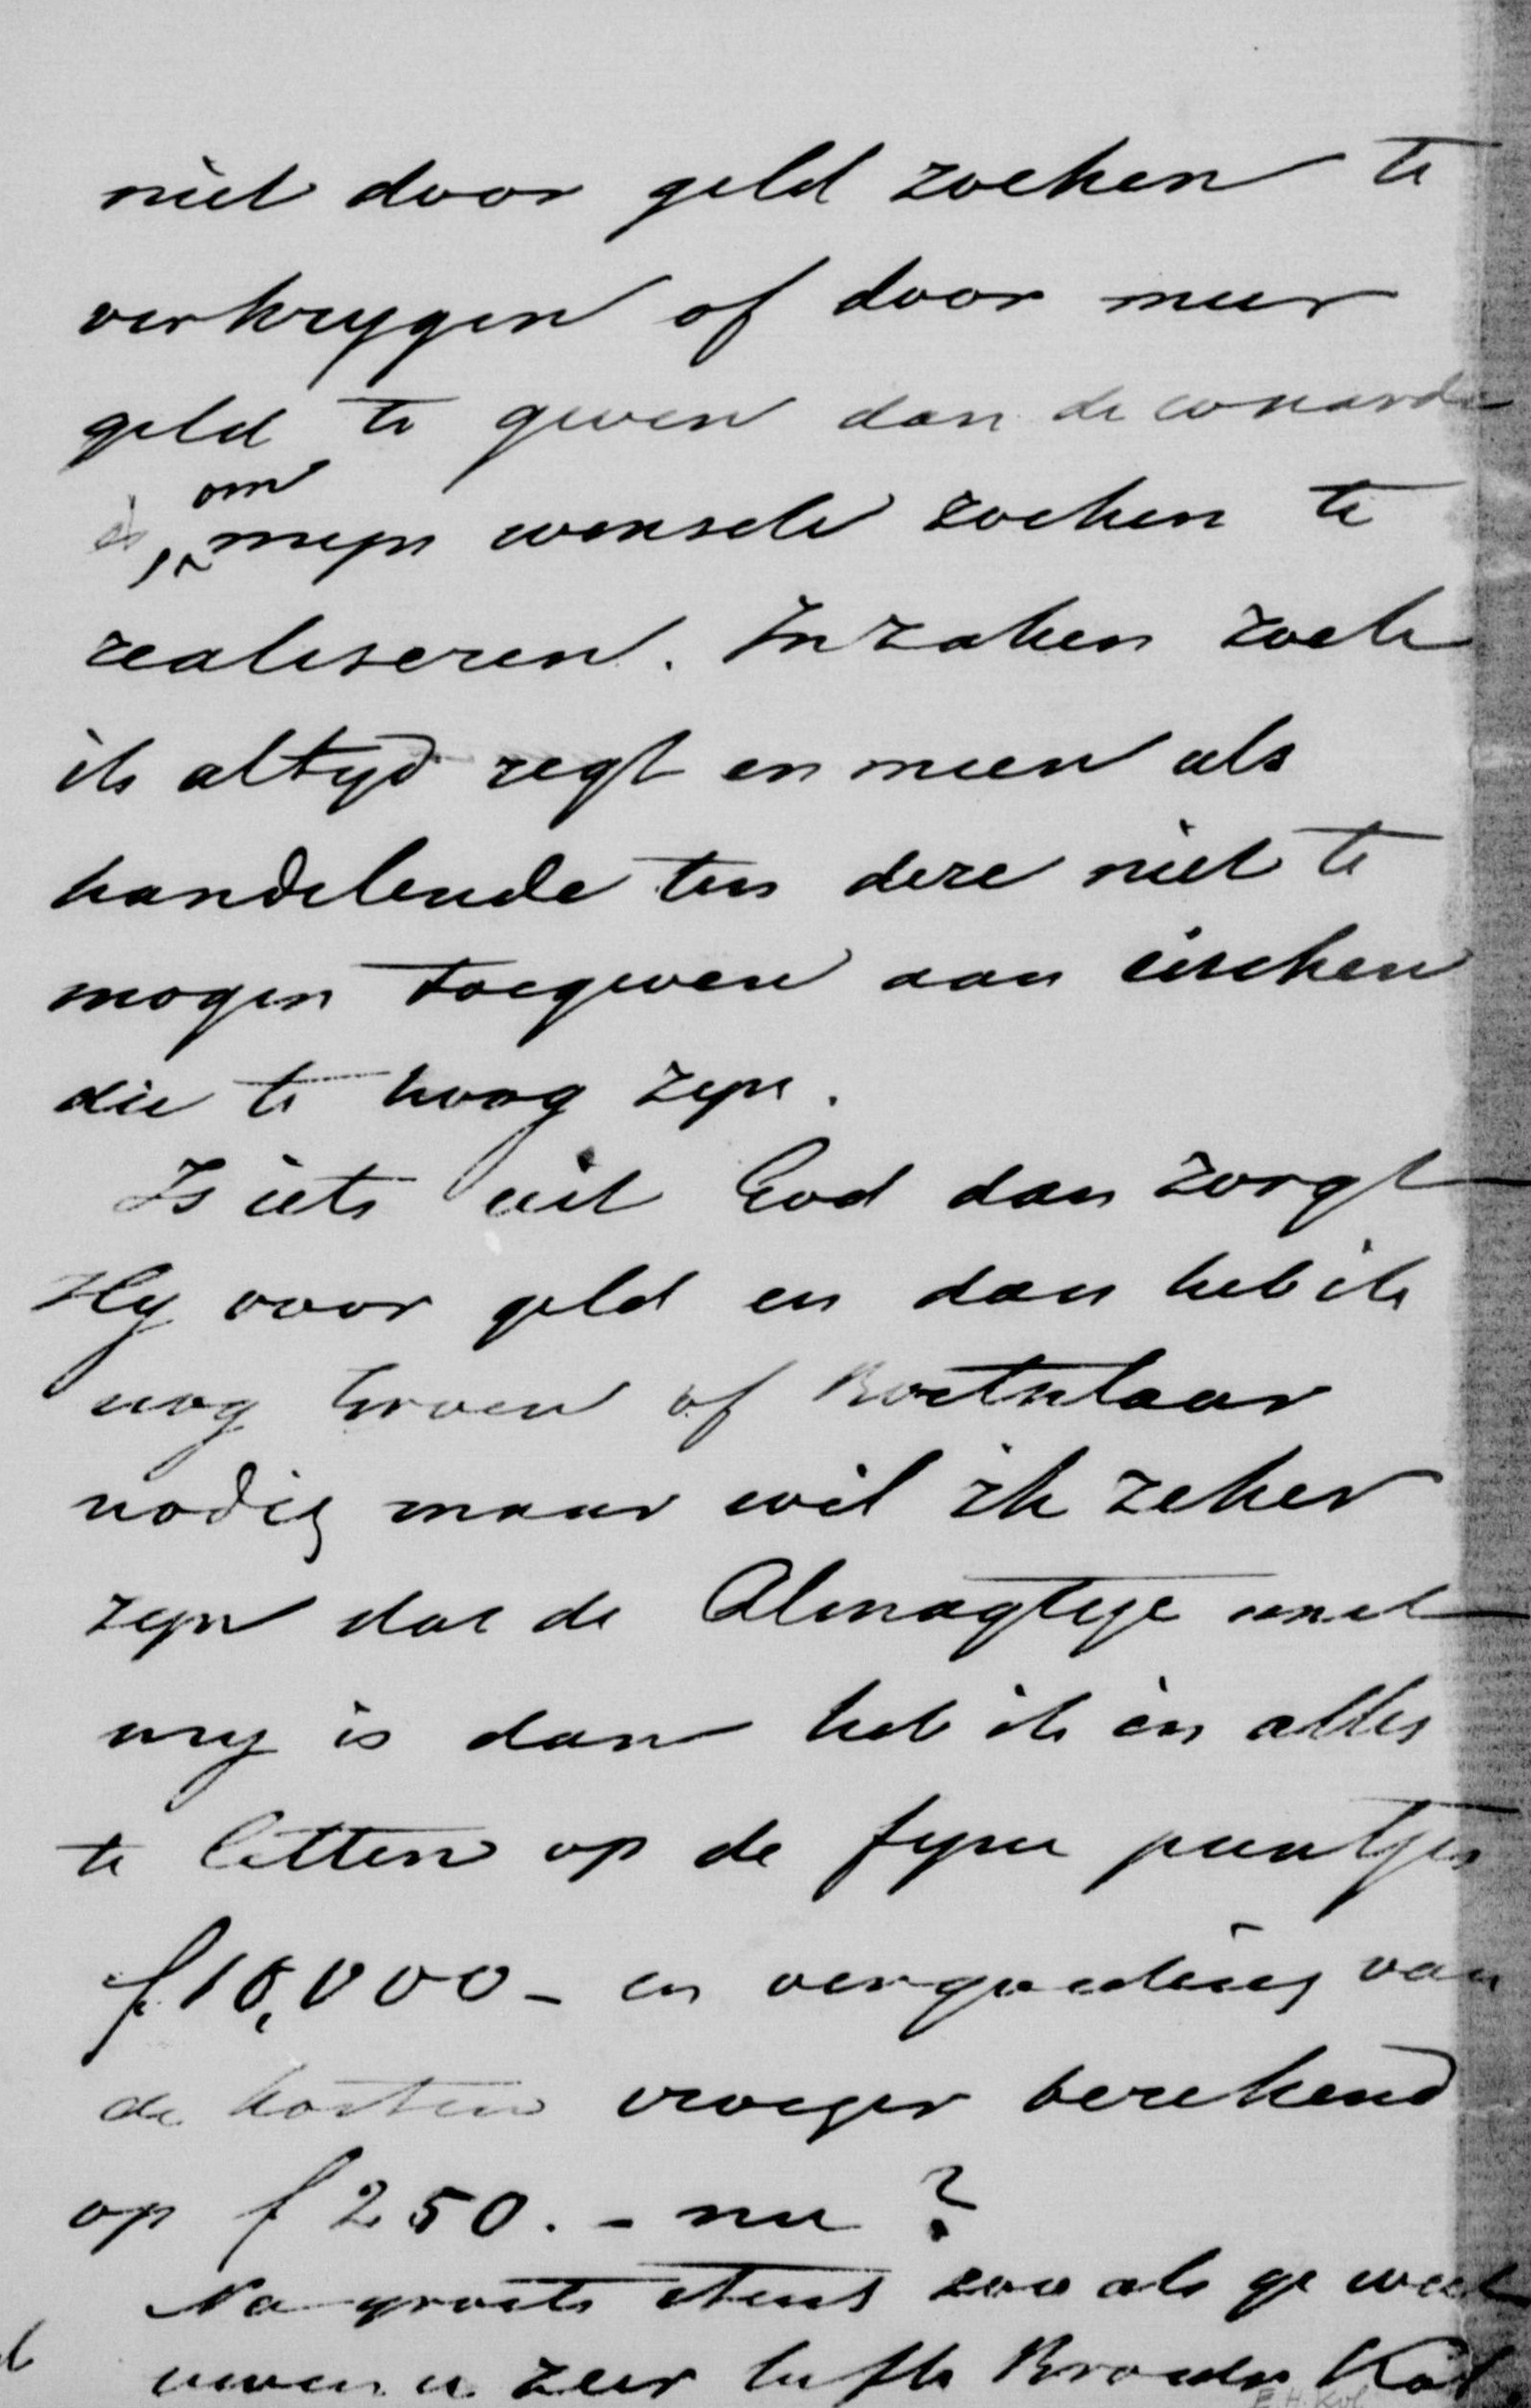 niet door geld zoeken te
verkrygen of door meer
geld te geven dan de waarde
is, om myn wensch zoeken te
realiseren. In zaken zoek
ik altyd regt en meen als
handelende ten deze niet te
mogen toegeven aan eischen
die te hoog zyn.
Is iets uit God dan zorgt
Hy voor geld en dan heb ik
nog of
nodig maar wil ik zeker
zyn dat de Almagtige met
my is dan heb ik in alles
te letten op de fyne puntjes
f 10,000 - en vergoeding van
de kosten vroeger berekend
op f 250. - nu ?
Na groete steeds zoo als ge weet
uwen u zeer liefh Broeder Kol